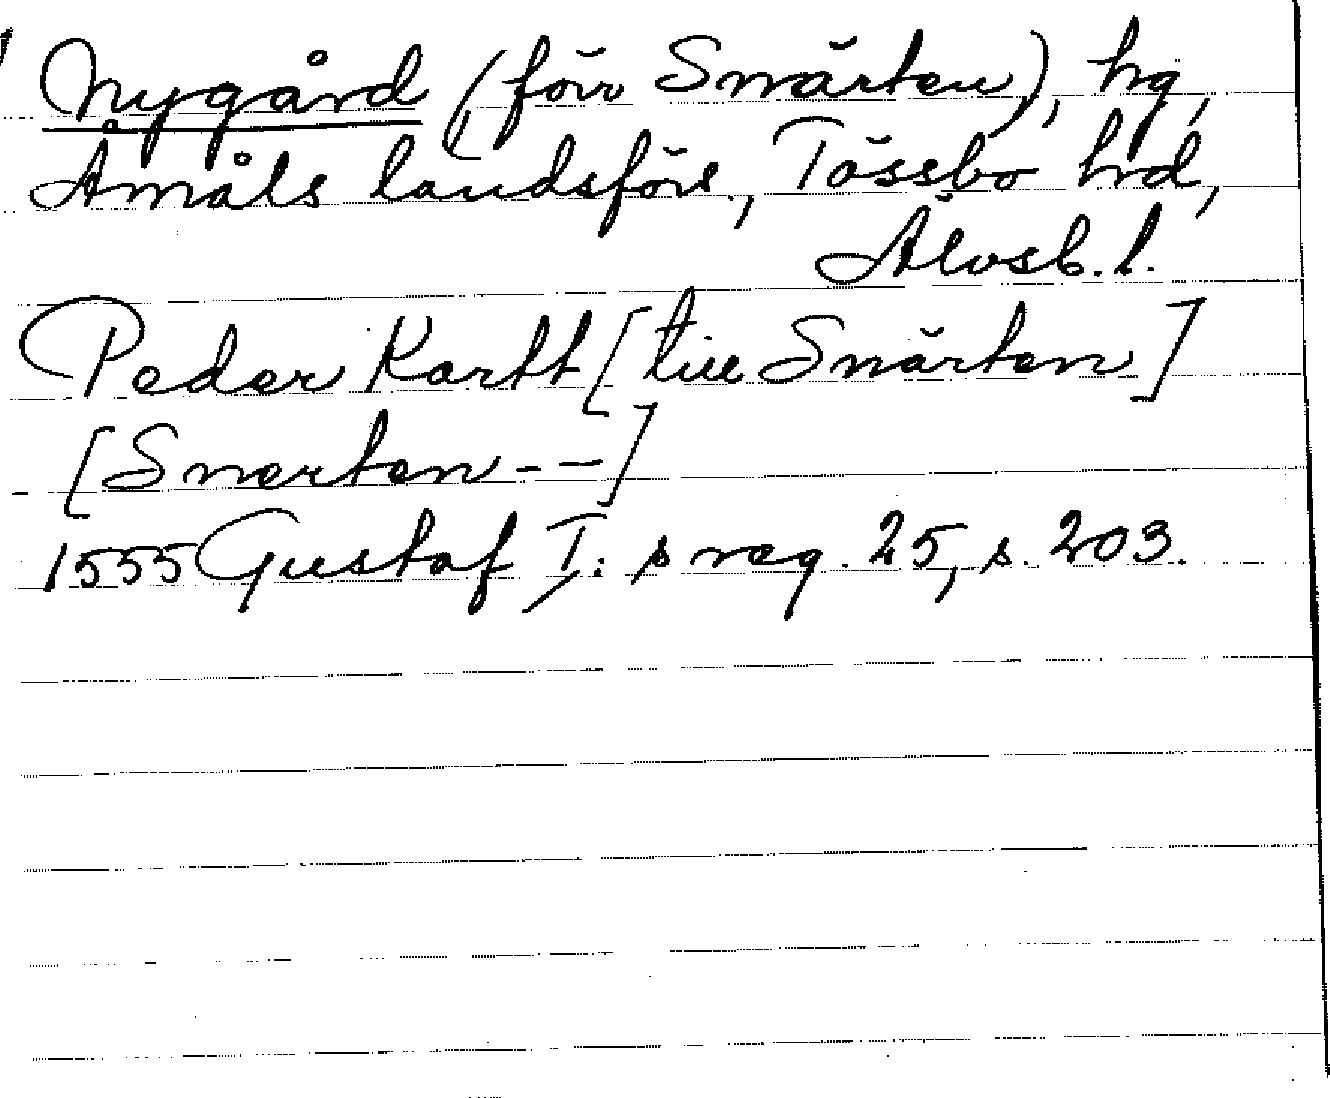 Nygård (förr Snärten), hg,
Åmåls landsförs., Tössbo hrd,
Älvsb. l.
Peder Kartt [till Snärten]
[Snerten - -]
1555 Gustaf I:s reg. 25, s. 203.